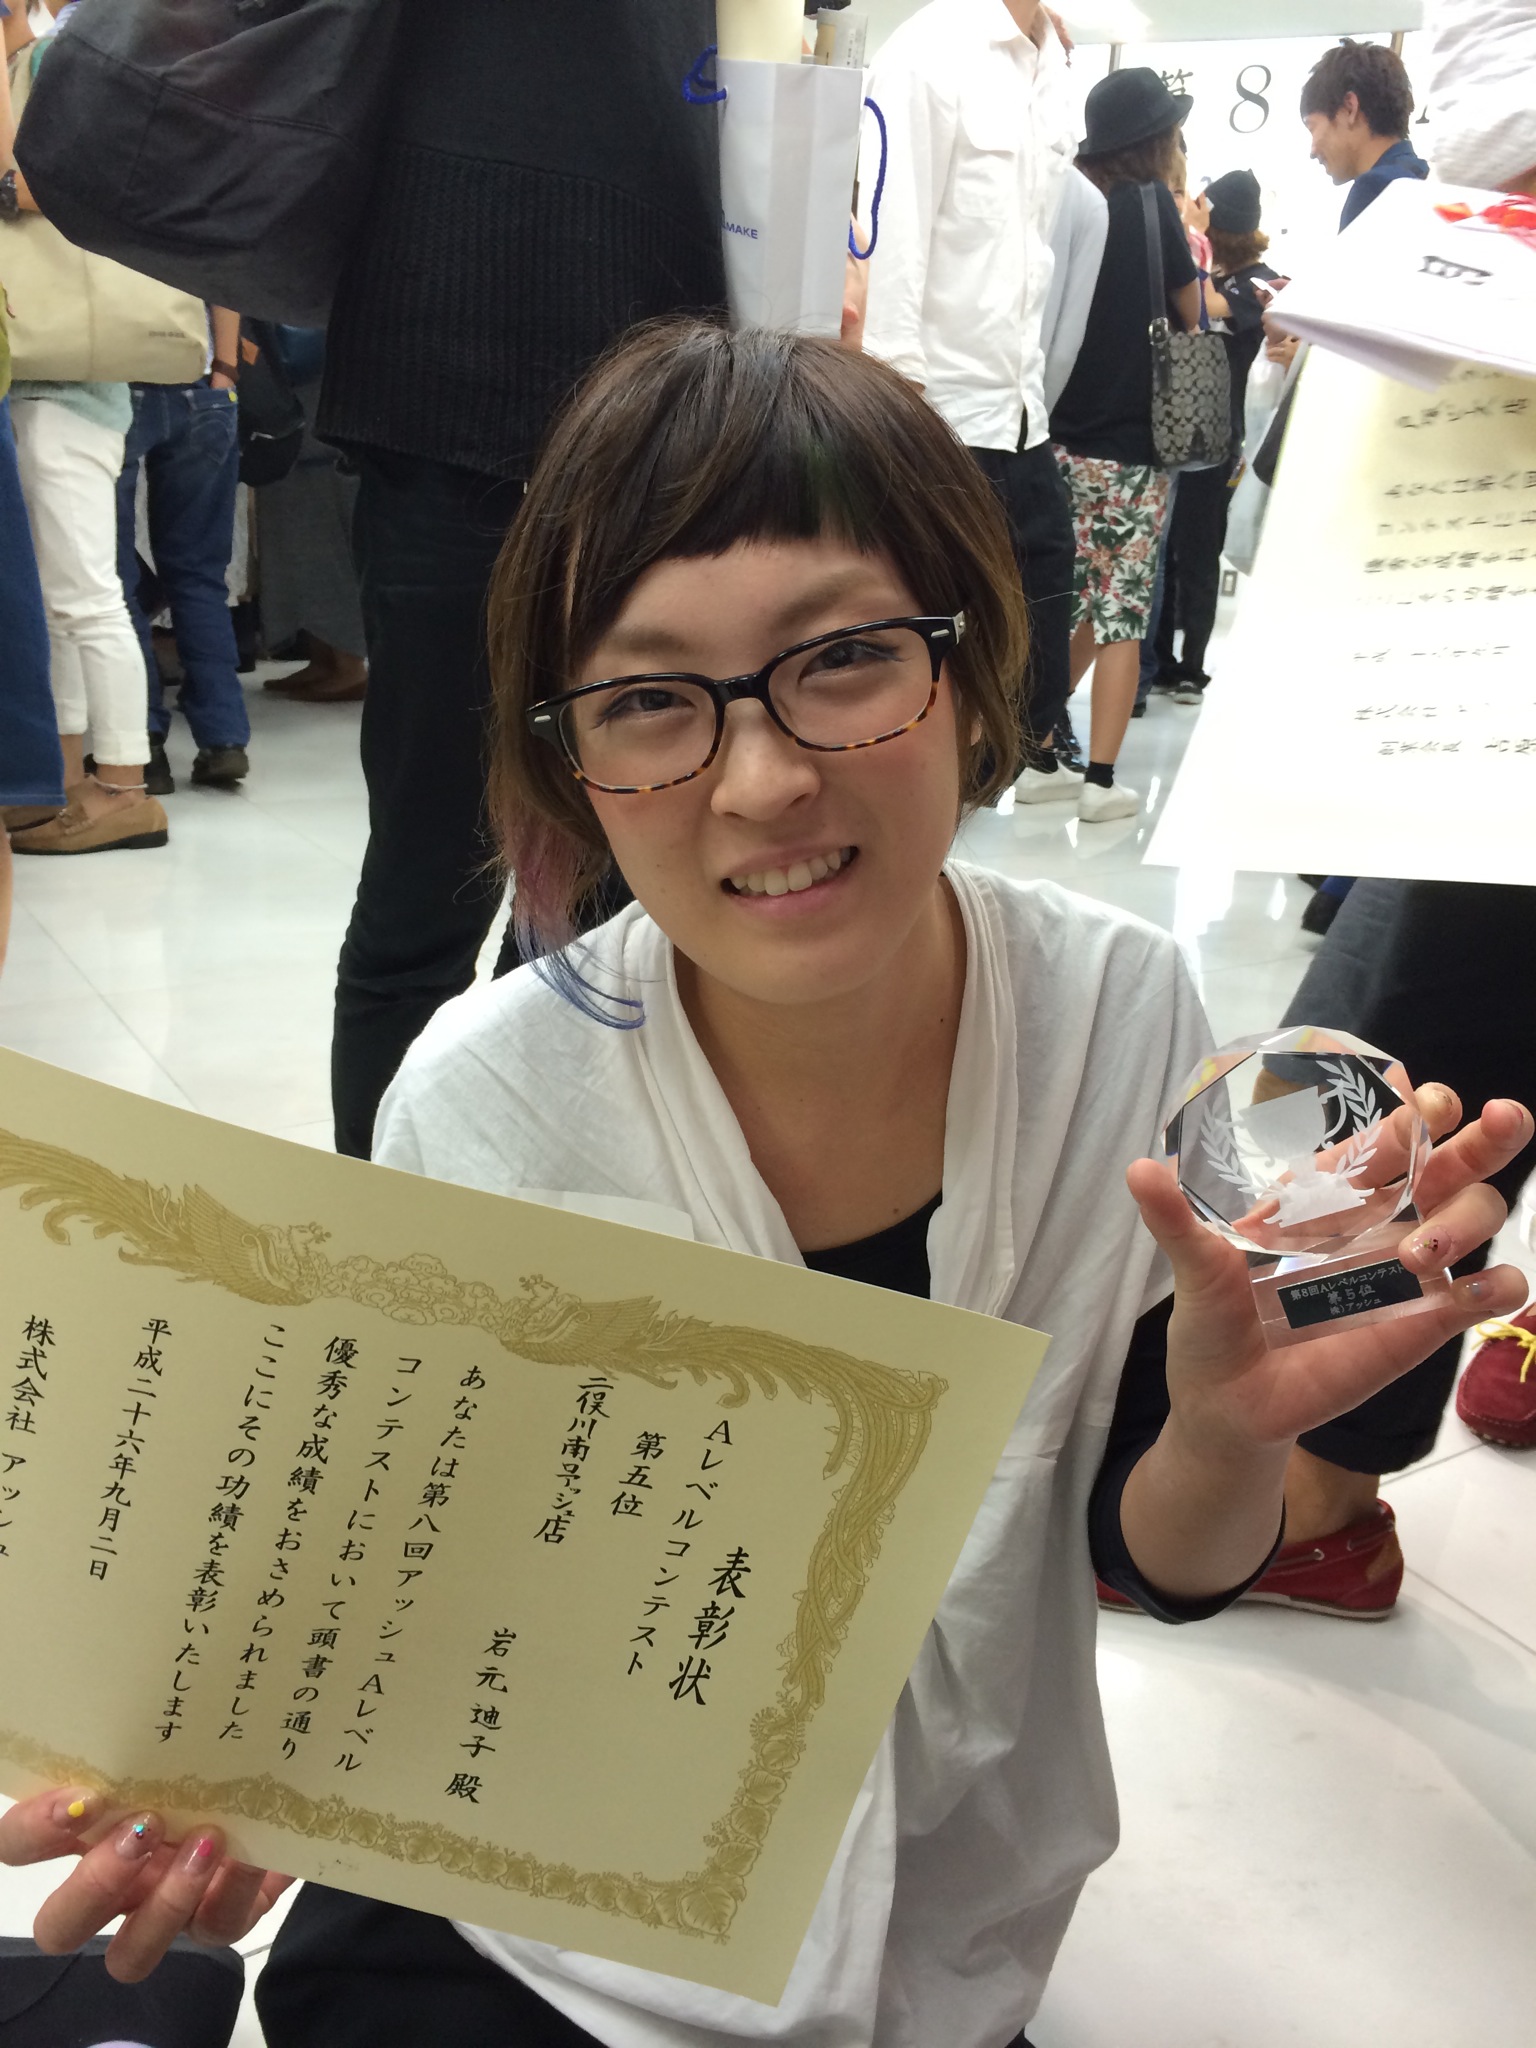 表彰状
Aレベルコンテスト
第五位
二俣川南口アッシュ店
岩元迪子殿
あなたは第八回アッシュAレベル
コンテストにおいて頭書の通り
優秀な成績をおさめられました
ここにその功績を表彰いたします
平成二十六年九月二日
株式会社アッシュ
第8回Aレベルコンテスト
第5位
㈱アッシュ
第8
MAKE
あなたは第八回
コンテストにお
優秀な成績をお
ここにその功績を